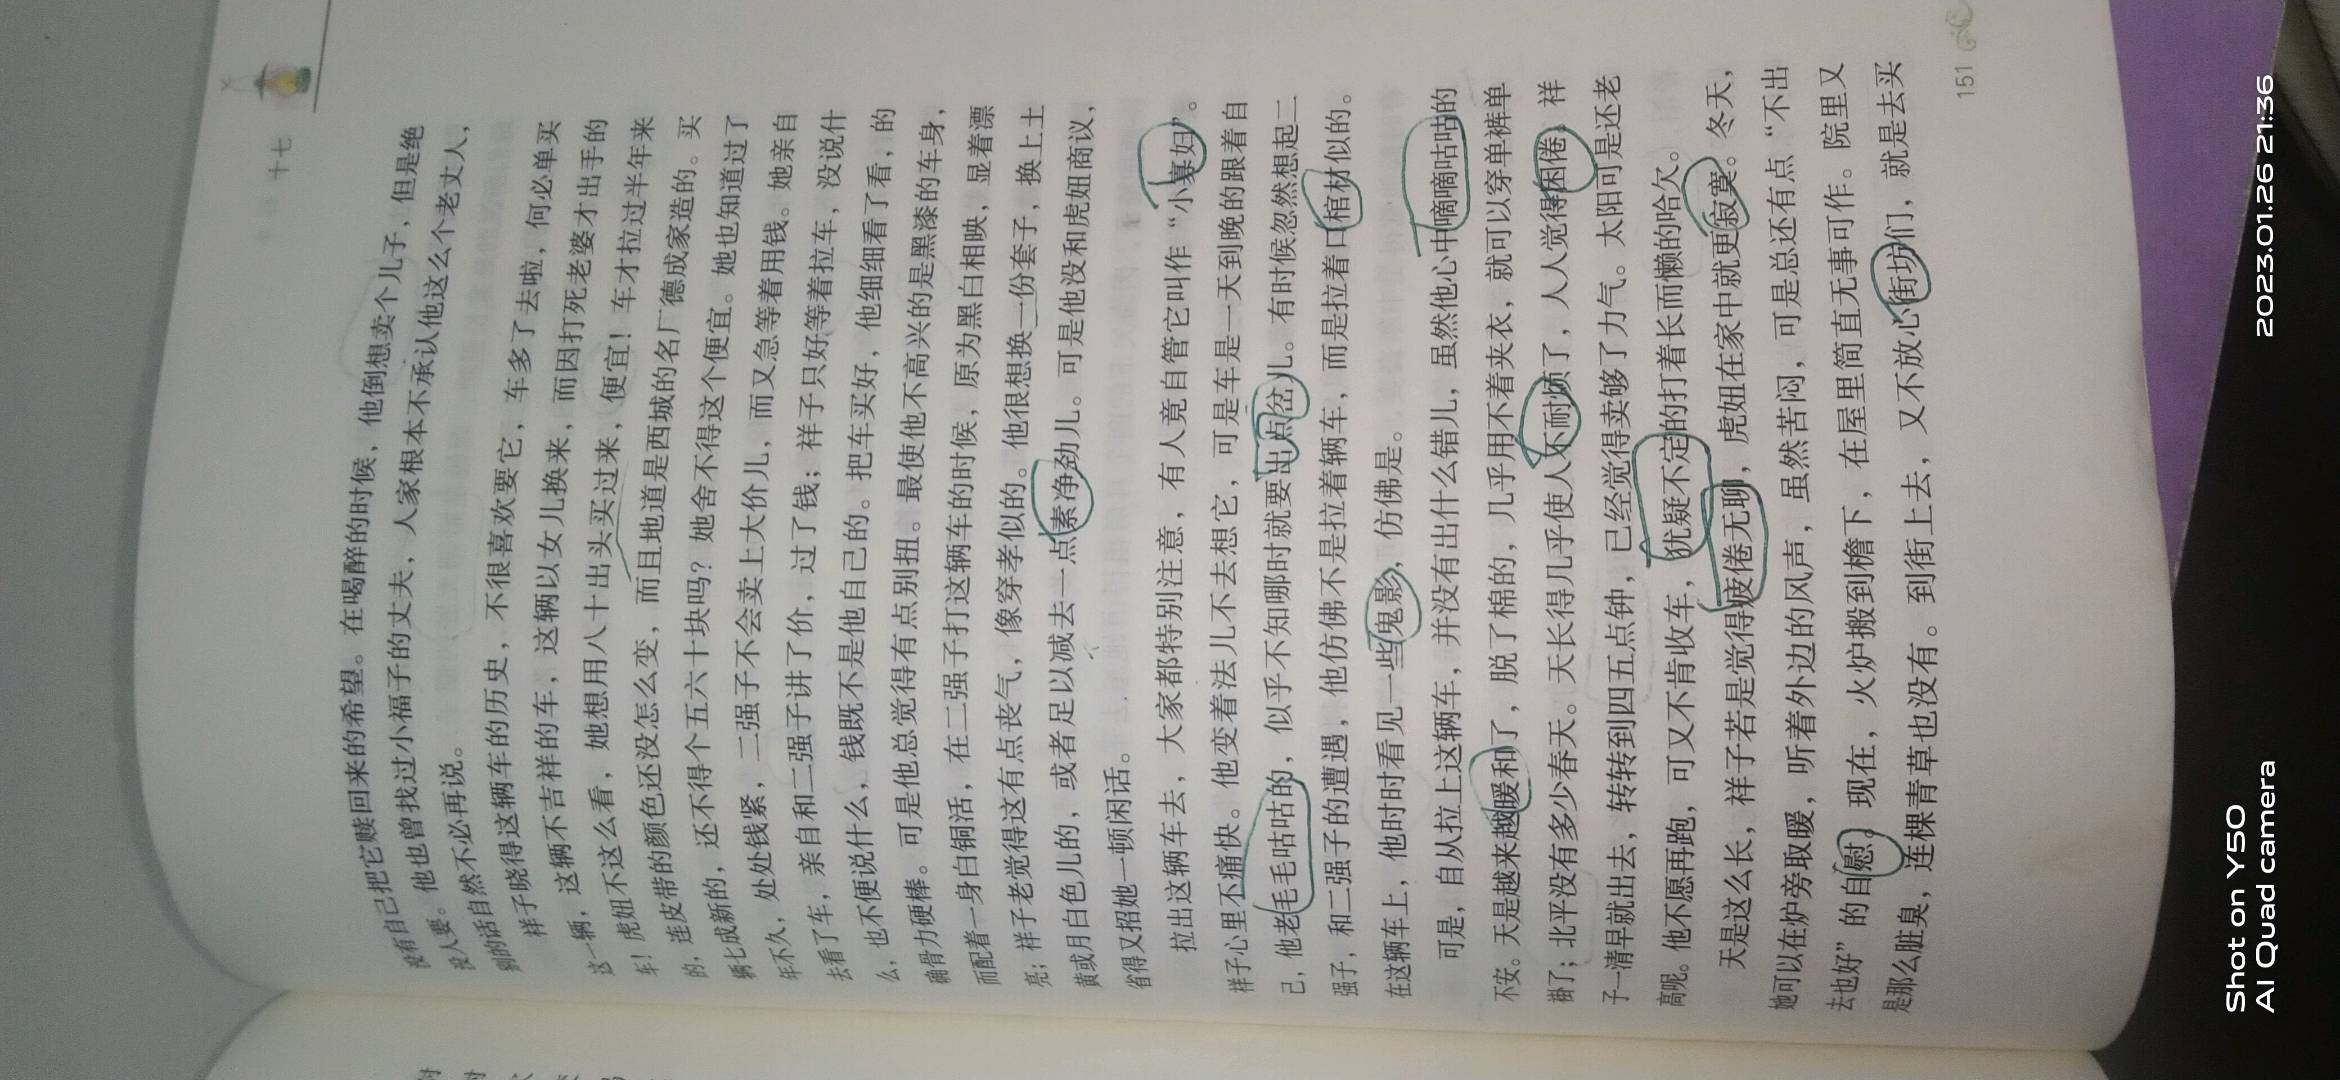 十七
没有自己把它赎回来的希望。在喝醉的时候，他倒想卖个儿子，但是绝
没人要。他也曾找过小福子的丈夫，人家根本不承认他这么个老丈人，
别的话自然不必再说。
祥子晓得这辆车的历史，不很喜欢要它，车多了去啦，何必单买
这一辆，这辆不吉祥的车，这辆以女儿换来，而因打死老婆才出手的
车！虎妞不这么看，她想用八十出头买过来，便宜！车才拉过半年来
的，连皮带的颜色还没怎么变，而且地道是西城的名厂德成家造的。买
辆七成新的，还不得个五六十块吗？她舍不得这个便宜。她也知道过了
年不久，处处钱紧，二强子不会卖上大价儿，而又急等着用钱。她亲自
去看了车，亲自和二强子讲了价，过了钱；祥子只好等着拉车，没说什
么，也不便说什么，钱既不是他自己的。把车买好，他细细看了看，的
确骨力硬棒。可是他总觉得有点别扭。最使他不高兴的是黑漆的车身，
而配着一身白铜活，在二强子打这辆车的时候，原为黑白相映，显着漂
亮；祥子老觉得这有点丧气，像穿孝似的。他很想换一份套子，换上土
黄或月白色儿的，或者足以减去一点素净劲儿。可是他没和虎妞商议，
省得又招她一顿闲话。
拉出这辆车去，大家都特别注意，有人竟自管它叫作“小寡妇”。
祥子心里不痛快。他变着法儿不去想它，可是车是一天到晚的跟着自
己，他老毛毛咕咕的，似乎不知哪时就要出点岔儿。有时候忽然想起二
强子，和二强子的遭遇，他仿佛不是拉着辆车，而是拉着口棺材似的。
在这辆车上，他时时看见一些鬼影，仿佛是。
可是，自从拉上这辆车，并没有出什么错儿，虽然他心中嘀嘀咕咕的
不安。天是越来越暖和了，脱了棉的，几乎用不着夹衣，就可以穿单裤单
褂了；北平没有多少春天。天长得几乎使人不耐烦了，人人觉得困倦。祥
子一清早就出去，转转到四五点钟，已经觉得卖够了力气。太阳可是还老
高呢。他不愿再跑，可又不肯收车，犹疑不定的打着长而懒的哈欠。
天是这么长，祥子若是觉得疲倦无聊，虎妞在家中就更寂寞。冬天，
她可以在炉旁取暖，听着外边的风声，虽然苦闷，可是总还有点“不出
去也好”的自慰。现在，火炉搬到檐下，在屋里简直无事可作。院里又
是那么脏臭，连棵青草也没有。到街上去，又不放心街坊们，就是去买
151
Shot on Y50
AI Quad camera
2023.01.26 21:36